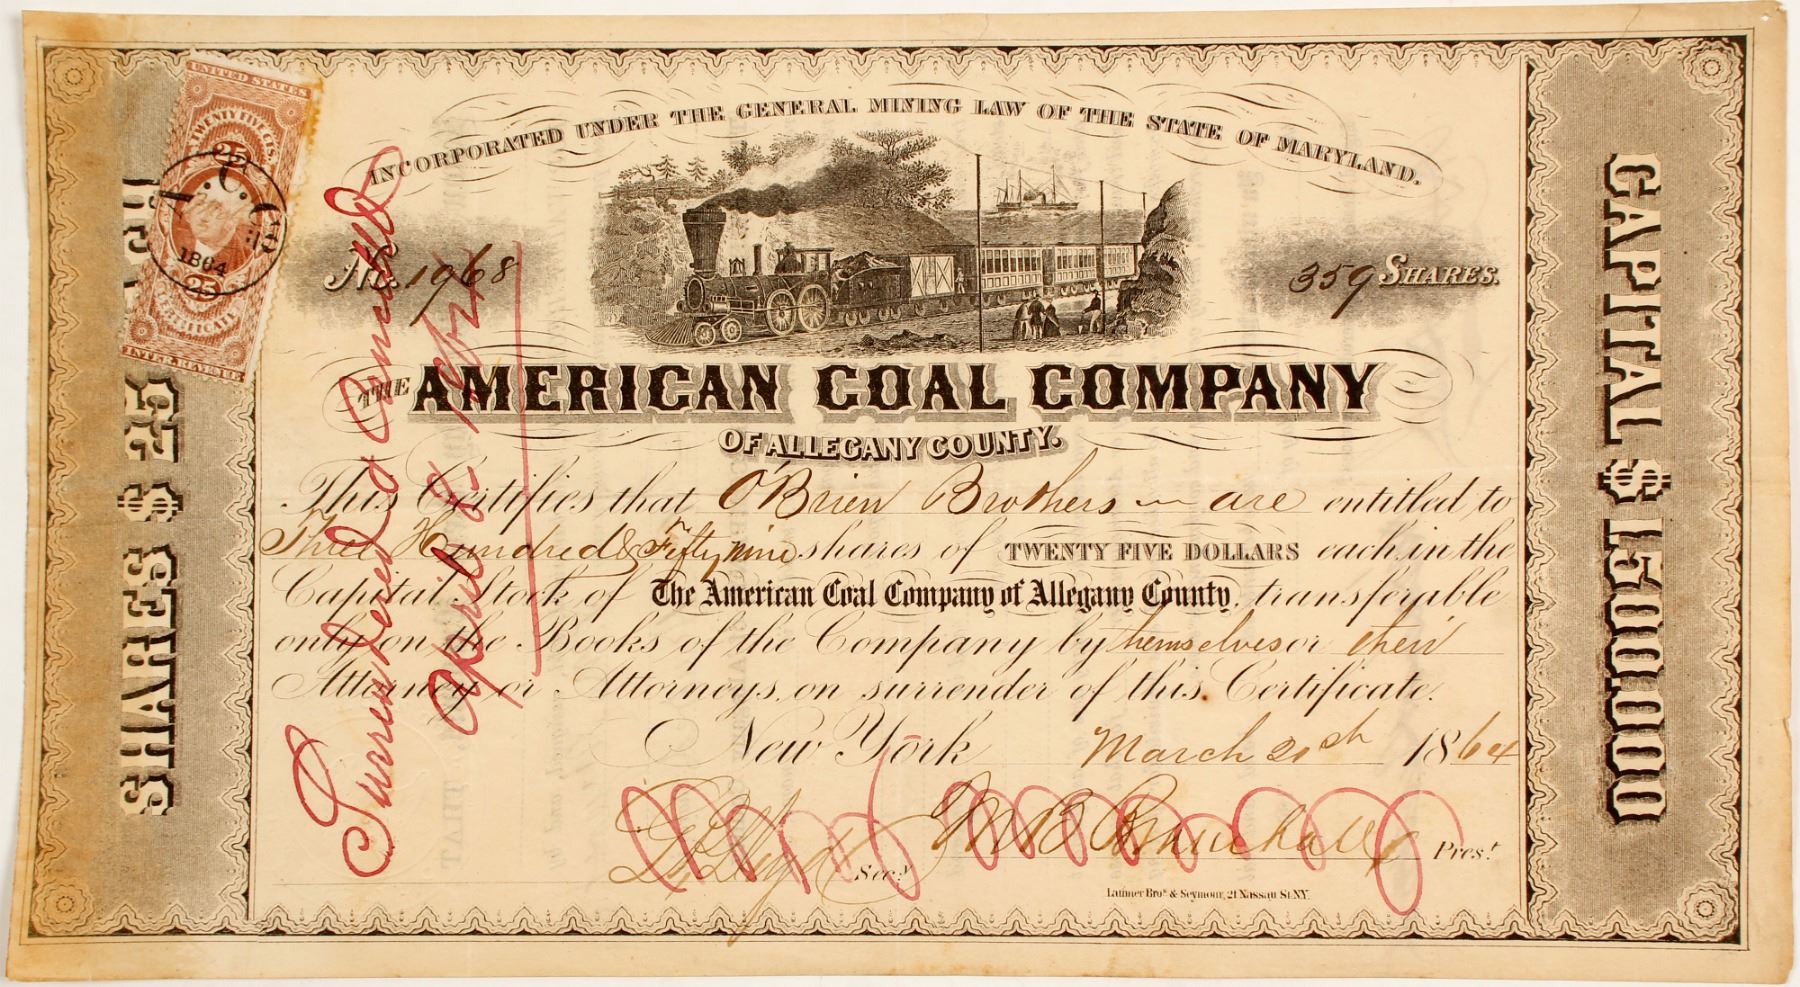 INCORPORATED UNDER THE GENERAL MINING LAW OF THE STATE OF MARYLAND.
UNITED STATES
TWENTY FIVE CTS.
25
A. C. Co
1864
25
CERTIFICATE
INTER. REVENUE
No. 1968
359 SHARES.
THE AMERICAN COAL COMPANY
OF ALLEGANY COUNTY.
This Certifies that O'Brien Brothers are entitled to
Three Hundred & Fifty nine shares of TWENTY FIVE DOLLARS each, in the
Capital Stock of The American Coal Company of Allegany County, transferable
only on the Books of the Company by themselves or their
Attorney or Attorneys, on surrender of this Certificate.
New York March 21st 1864
Secy
Prest
Latimer Bros & Seymour, 21 Nassau St. N.Y.
Surrendered & Cancelled
April
SHARES $ 25
CAPITAL $ 1,500,000